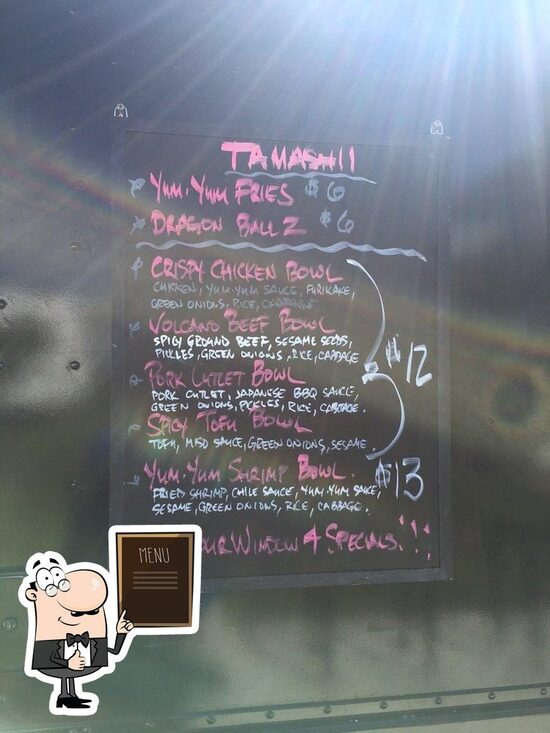 TAMASHII
YUM-YUM FRIES $6
DRAGON BALL Z $6
CRISPY CHICKEN BOWL
CHICKEN, YUM-YUM SAUCE, FURIKAKE,
GREEN ONIONS, RICE, CABBAGE
VOLCANO BEEF BOWL
SPICY GROUND BEEF, SESAME SEEDS,
PICKLES, GREEN ONIONS, RICE, CABBAGE
$12
PORK CUTLET BOWL
PORK CUTLET, JAPANESE BBQ SAUCE,
GREEN ONIONS, PICKLES, RICE, CABBAGE.
SPICY TOFU BOWL
TOFU, MISO SAUCE, GREEN ONIONS, SESAME
YUM-YUM SHRIMP BOWL. $13
FRIED SHRIMP, CHILE SAUCE, YUM-YUM SAUCE,
SESAME, GREEN ONIONS, RICE, CABBAGE.
WINDOW 4 SPECIALS!!!
MENU